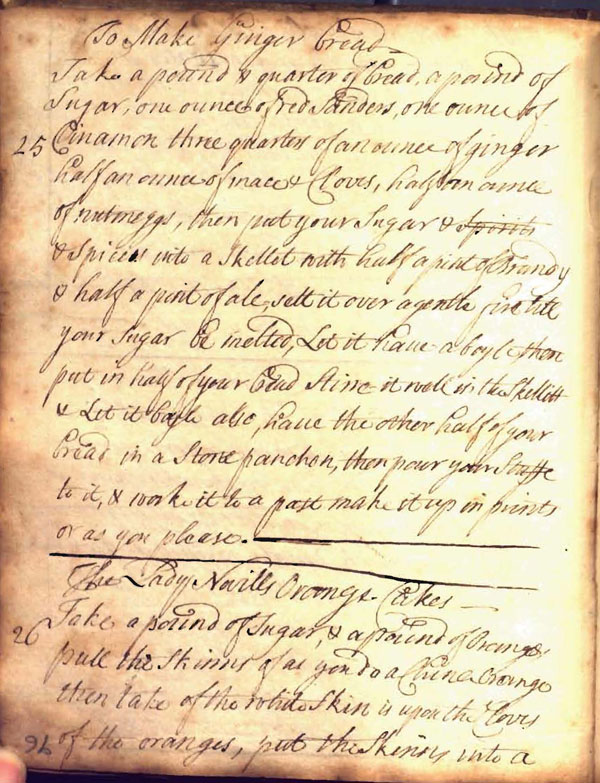 To Make Ginger Bread
Take a pound & quarter of bread, a pound of
Sugar, one ounce of red Sanders, one ounce of
25 Cinamon three quarters of an ounce of ginger
half an ounce of mace & Cloves, half an ounce
of nutmeggs, then put your Sugar & Spirits
& Spices into a Skellet with half a pint of Brandy
& half a pint of ale, sett it over a gentle fire till
your Sugar be melted, Let it have a boyle then
put in half of your bread Stirre it well in the Skellett
& Let it boyle also, have the other half of your
bread in a Stone panchon, then pour your Stuffe
to it, & work it to a past make it up in prints
or as you please.
The Lady Nevills Orange Cakes
26 Take a pound of Sugar, & a pound of Oranges
pull the Skinns of as you do a China Orange
then take of the white Skin is upon the Cloves
of the oranges, put the Skinns into a
16